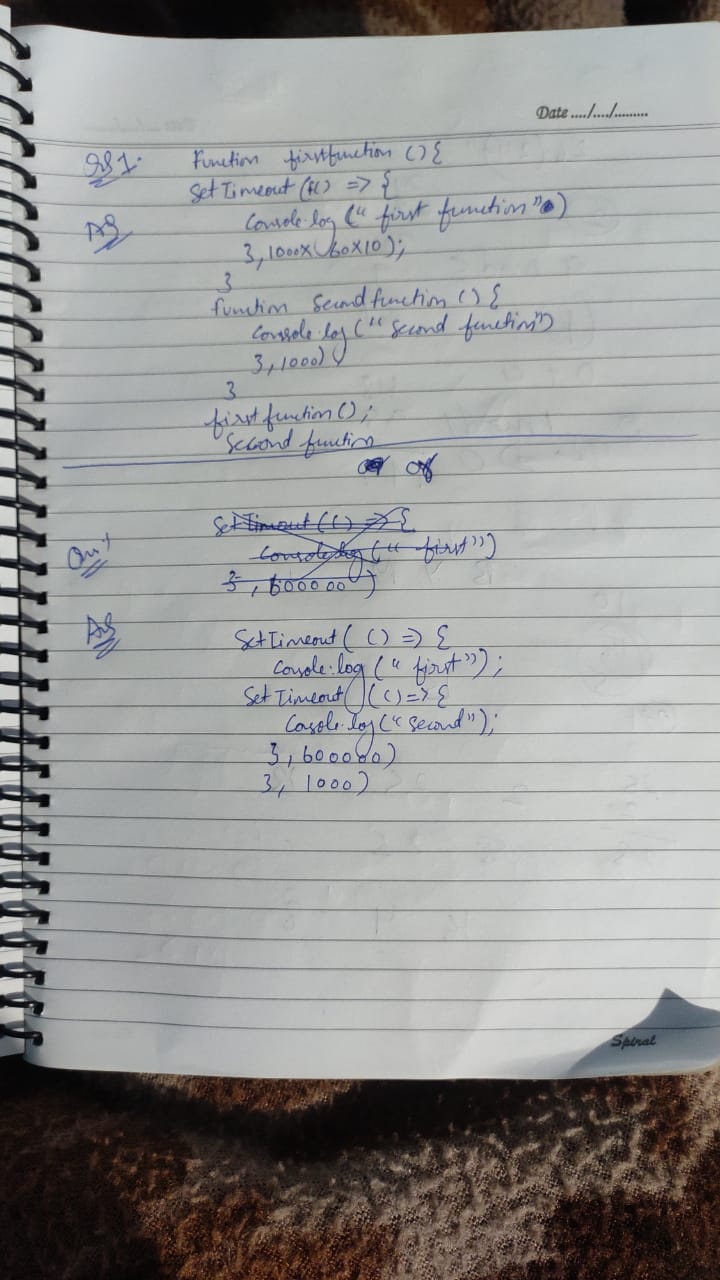 Date ..../..../.........
QS 1. Function firstfunction () {
SetTimeout (() => {
AS Console.log (" first function")
}, 1000x 60x10);
}
function Secondfunction () {
Console.log (" Second function")
}, 1000)
}
firstfunction ();
Second function
or
SetTimeout (() => {
Console.log (" first")
}, 600000)
AS
SetTimeout ( () => {
Console.log (" first");
SetTimeout (() => {
Console.log (" Second");
}, 600000)
}, 1000)
Spiral